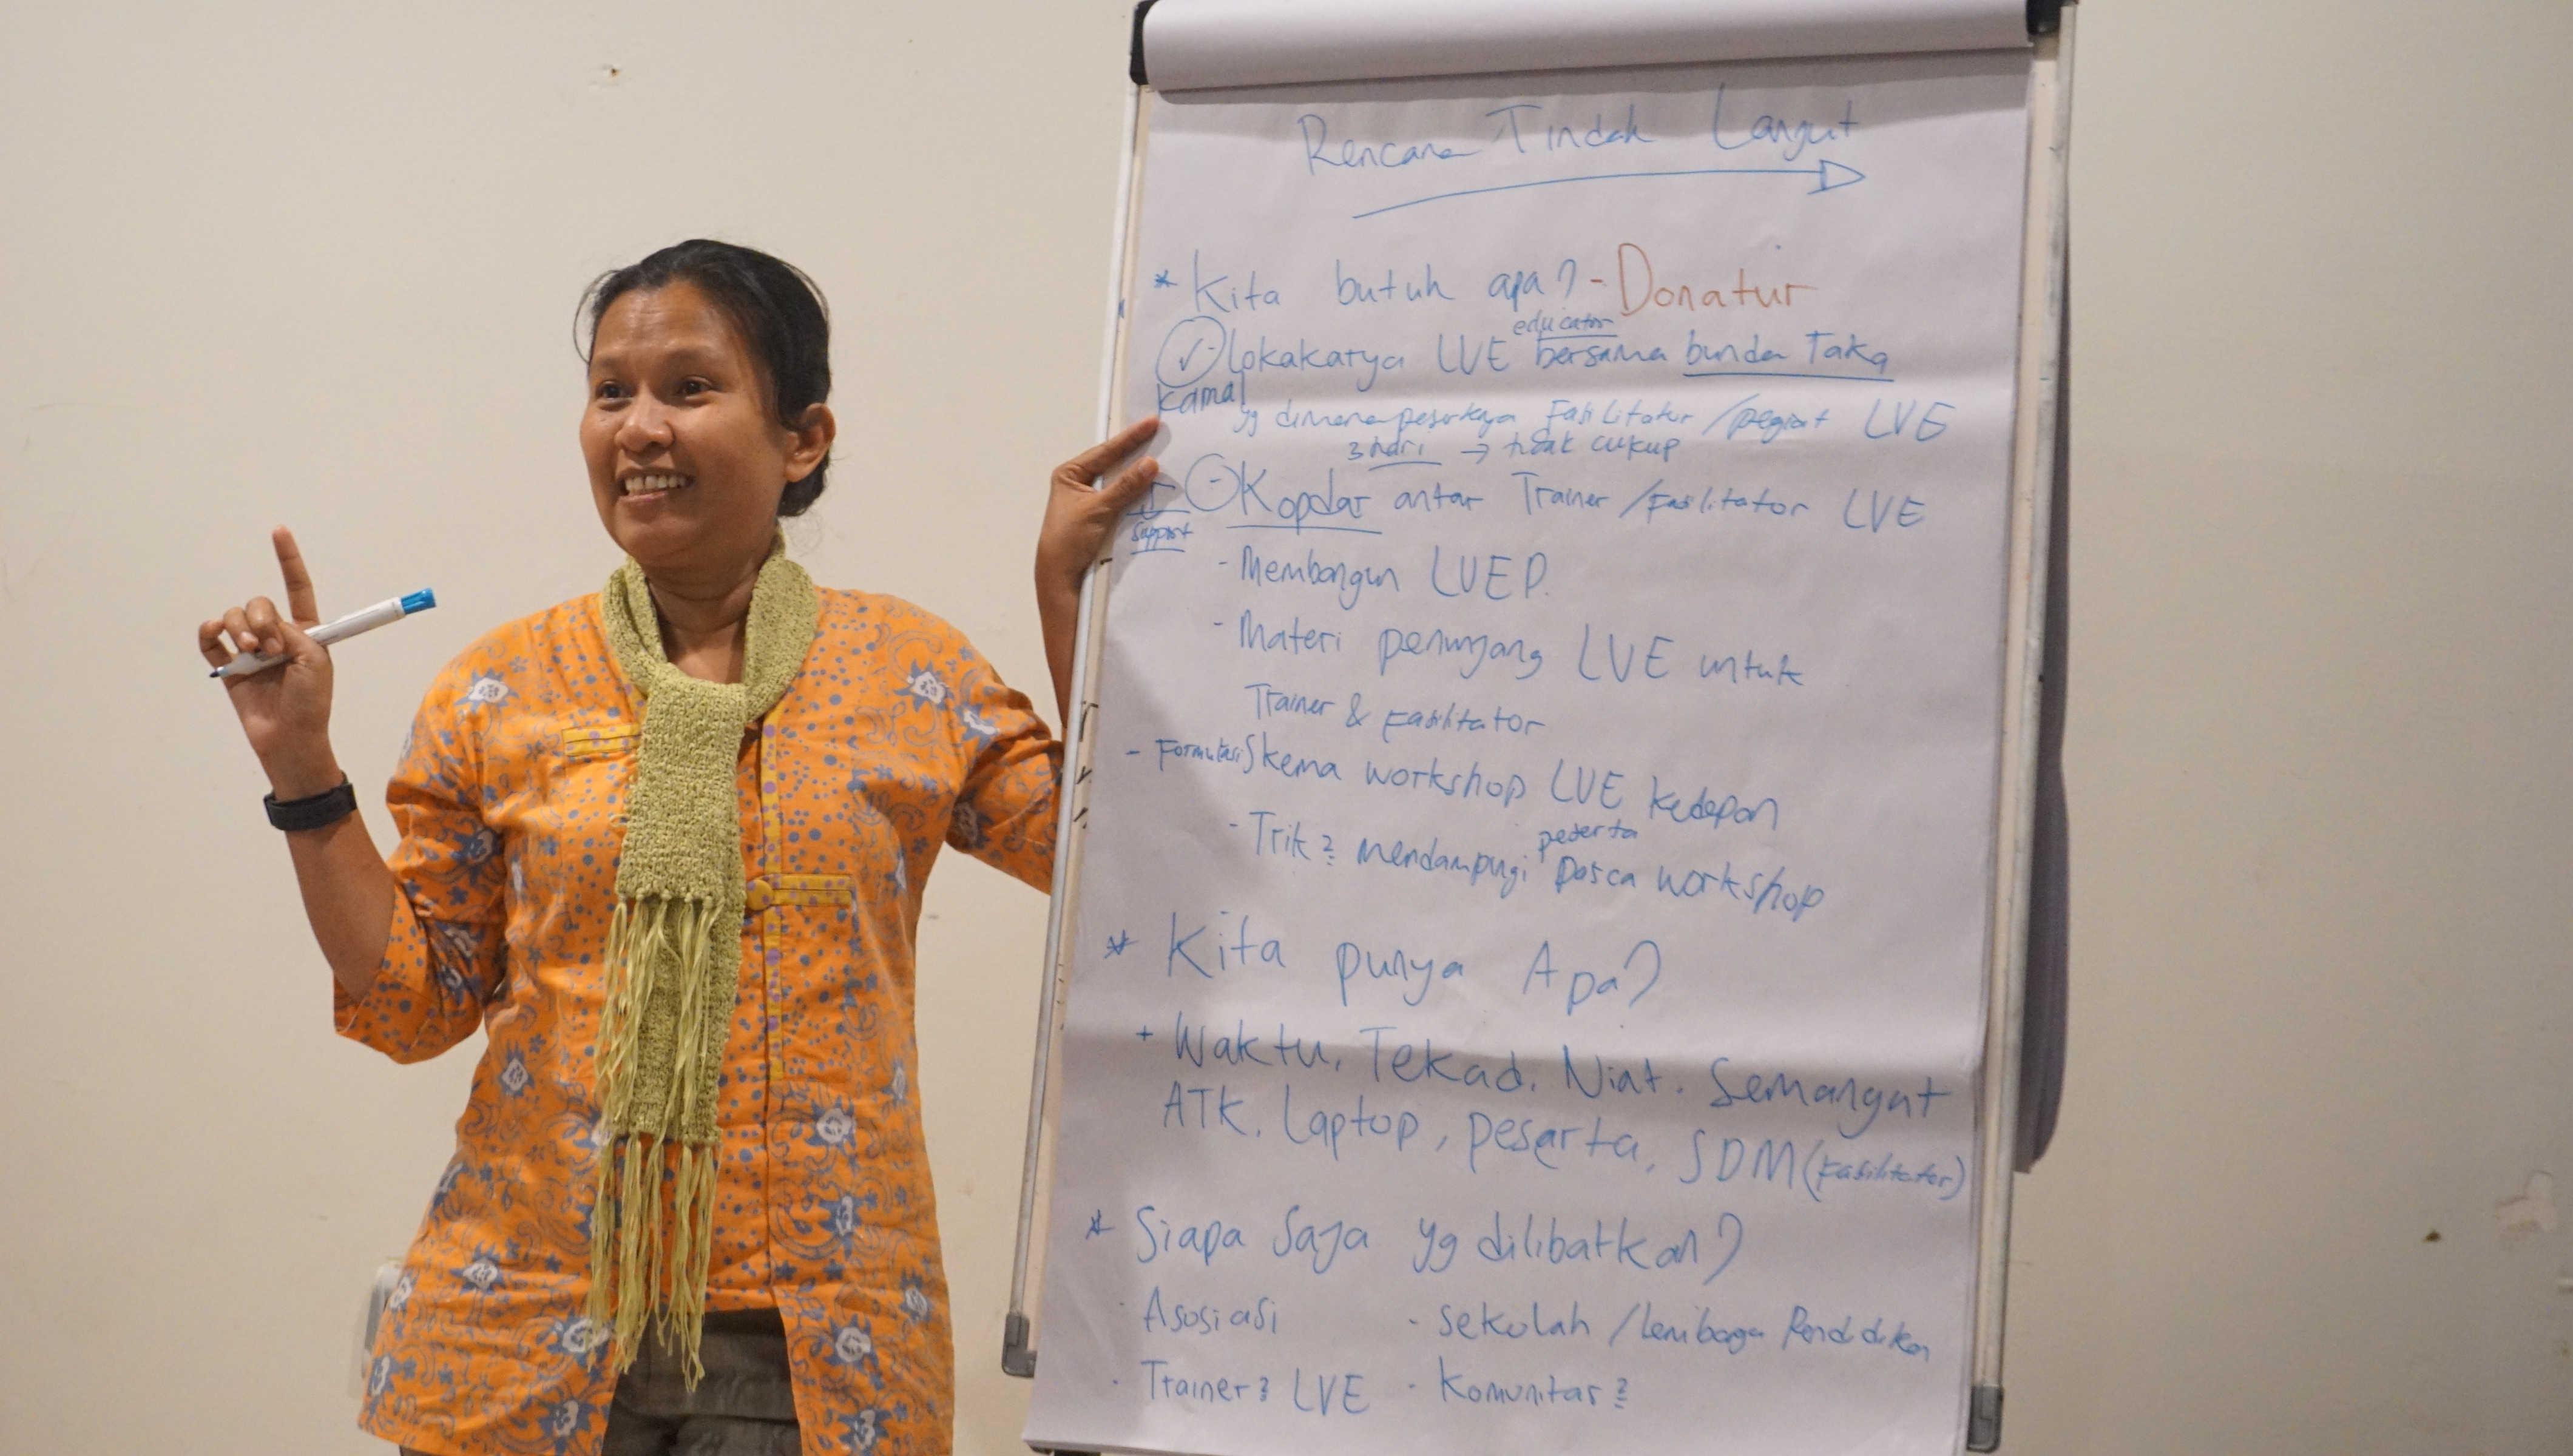 Rencana Tindak Langut
* Kita butuh apa? - Donatur
educator
✓ - Lokakarya LVE bersama bunda Taka
Kamal
yg dimana pesertanya Fasilitator / pegiat LVE
3 hari → tidak cukup
- Kopdar antar Trainer / Fasilitator LVE
Support
- Membangun LVEP.
- Materi penunjang LVE untuk
Trainer & Fasilitator
- Formulasi Skema workshop LVE kedepan
peserta
- Trik 2 mendampingi pasca workshop
* Kita punya Apa?
+ Waktu, Tekad, Niat. Semangat
ATK, Laptop, peserta, SDM (Fasilitator)
* Siapa Saja yg dilibatkan?
· Asosiasi · Sekolah / Lembaga Pendidikan
· Trainer 2 LVE · Komunitas 2